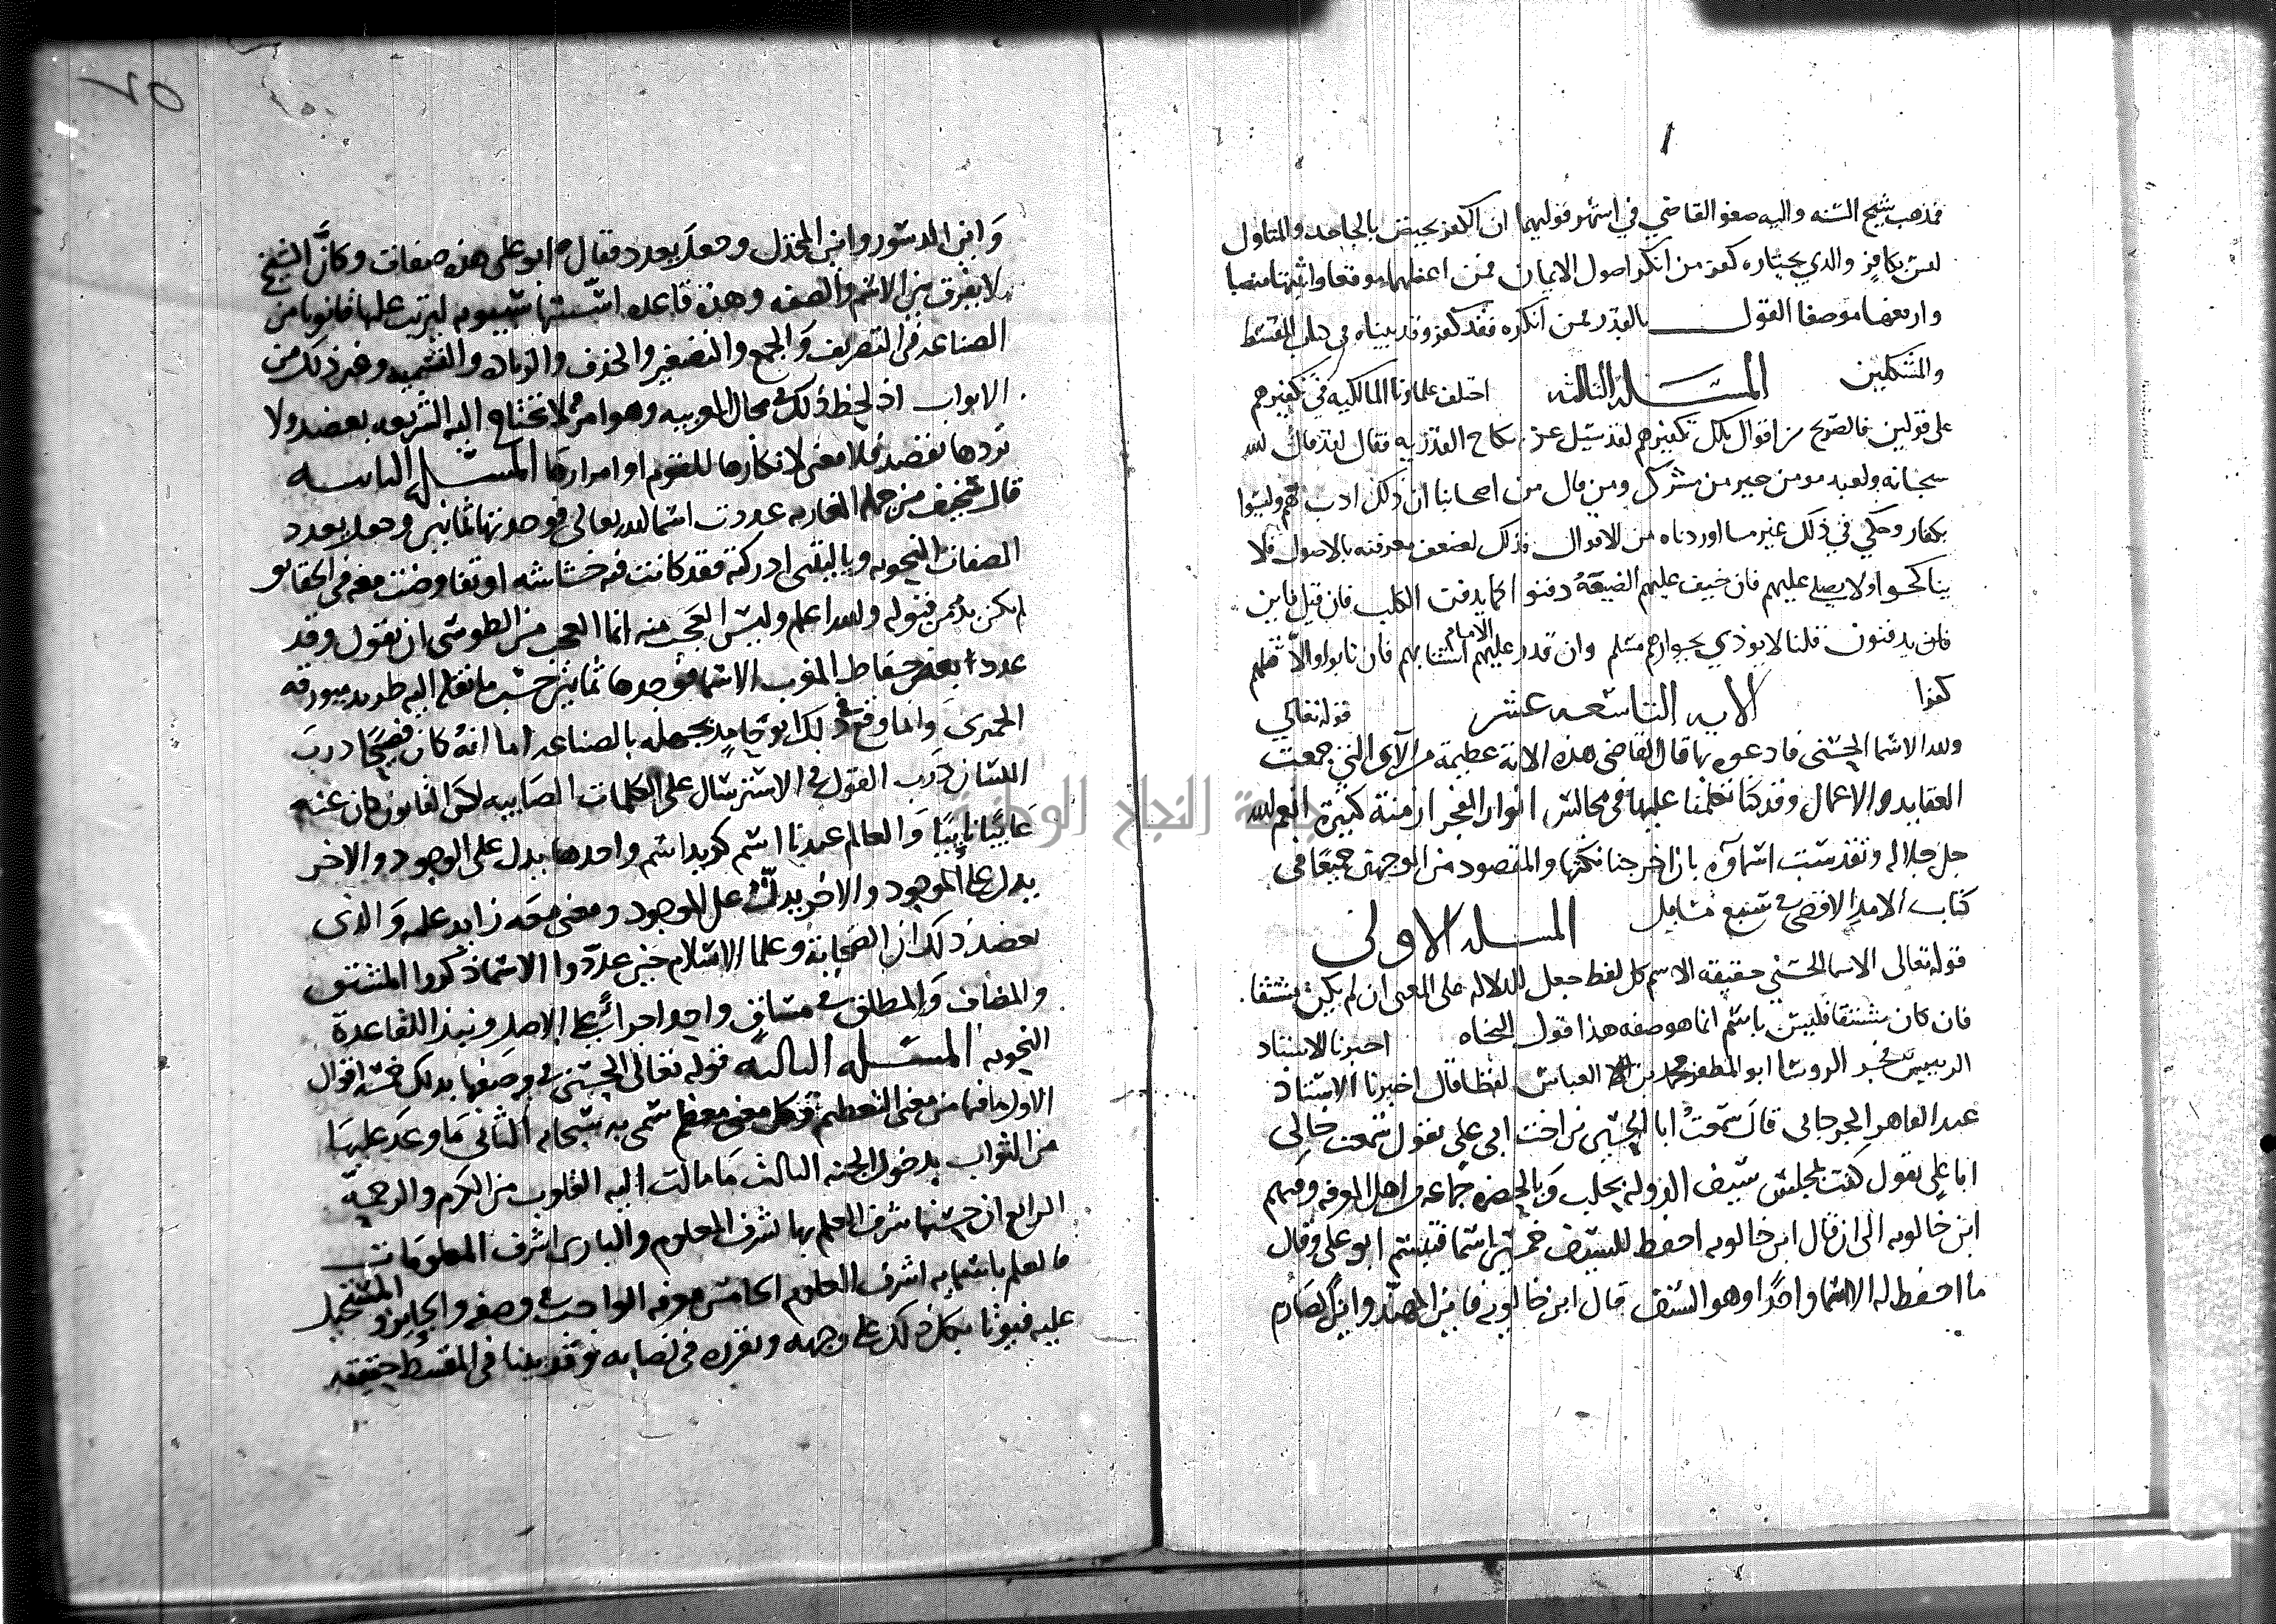 فمذهب شيخ السنه واليه صغو القاضي في اشهر قوليهما ان الكفر يختص بالجاحد والمتاول
ليس بكافر والذي يختاره كفر من انكر اصول الايمان فمن اعظمها موقعا وابينها منصبا
واوقعها موضعا القول بالقدر فمن انكره فقد كفر وقد بيناه في كتاب المقسط
والمشكلين المسله الثالثه اختلف علماونا المالكيه في تكفيرهم
على قولين فالصريح من اقوال مالك تكفيرهم لقد سيل عن نكاح القدريه فقال لقد قال الله
سبحانه ولعبد مومن خير من مشرك ومن قال من اصحابنا ان ذلك ادب لهم وليسوا
بكفار وحكي في ذلك غير ما اوردناه من الاقوال فذلك لضعف معرفته بالاصول فلا
يناكحوا ولا يصلى عليهم فان خيف عليهم الضيعة دفنوا كما يدفن الكلب فان قيل فاين
يدفنون قلنا لا يوذي بجوارهم مسلم وان قدر عليهم الامام استتابهم فان تابوا والا قتلهم
كفرا الايه التاسعه عشر قوله تعالى
ولله الاسما الحسنى فادعوه بها قال القاضي هذه الاية عظيمة من الآي التي جمعت
العقايد والاعمال وقد كنا تكلمنا عليها في مجالس انوار الفجر ازمنة كثيرة انعم الله
جل جلاله وتقدست اسماؤه بان اخرجنا نكتها والمقصود من الوجهين جميعا في
كتاب الامد الاقصى في سبع مسايل المسله الاولى
قوله تعالى الاسما الحسنى حقيقه الاسم كل لفظ جعل للدلاله على المعنى ان لم يكن مشتقا
فان كان مشتقا فليس باسم انما هو صفه هذا قول النحاه اخبرنا الاستاد
الرييس فخر الروسا ابو المظفر محمد بن العباس لفظا قال اخبرنا الاستاد
عبد القاهر الجرجاني قال سمعت ابا الحسين بن اخت ابي علي يقول سمعت خالي
ابا علي يقول كنت بمجلس سيف الدوله بحلب وبالحضره جماعه من اهل المعرفه وفيهم
ابن خالويه الى ان قال ابن خالويه احفظ للسيف خمسين اسما فتبسم ابو علي وقال
ما احفظ له الا اسما واحدا وهو السيف قال ابن خالويه فاين المهند واين الصارم
واين الرسوب واين المخذم وجعل يعدد فقال ابو علي هذه صفات وكأن الشيخ
لا يفرق بين الاسم والصفه وهذه قاعده اسستها سيبويه ليرتب عليها قانونا من
الصناعه في التصريف والجمع والتصغير والحذف والزياده والنسبه وغير ذلك من
الابواب اذ لحظ ذلك في مجال العربيه وهو امر لا تحتاج اليه الشريعه بعضد ولا
تردها بقصد فلا معنى لانكارها للقوم او اقرارها المسله الثانيه
قال سخيف من جمله المغاربه عددت اسما الله تعالى فوجدتها ثمانين وجعل يعدد
الصفات النحويه وياليتني ادركته فقد كانت فيه حشاشه لو تفاوضت معه في الحقايق
لم يكن بد من قبوله والله اعلم وليس العجب منه انما العجب من الطوسي ان يقول وقد
عدد بعض حفاظ المغرب الاسما فوجدها ثمانين حسب ما نقل اليه طريد ميورقه
الحميدى وانما وقع في ذلك ابو حامد بجهله بالصناعه اما انه كان فصيحا درب
اللسان ذرب القول في الاسترسال على الكلمات الصايبه لكن القانون كان عنه
غايبا نابيا والعالم عندنا اسم كزيد اسم واحدها يدل على الوجود والاخر
يدل على الموجود والاخر يدل على الموجود ومعنى معه زايد عليه والذى
يعضد ذلك ان الصحابة وعلما الاسلام حين عددوا الاسما ذكروا المشتق
والمضاف والمطلق في مساق واحد اجراء على الاصل ونبذا للقاعدة
النحويه المسله الثالثه قوله تعالى الحسنى في وصفها بذلك خمسه اقوال
الاول ما فيها من معنى التعظيم فكل معنى معظم سمى به سبحانه الثاني ما وعد عليها
من الثواب بدخول الجنه الثالث ما مالت اليه القلوب من الكرم والرحمة
الرابع ان حسنها شرف العلم بها لشرف المعلوم والبارى اشرف المعلومات
فالعلم باسمايه اشرف العلوم الخامس معرفه الواجب في وصفه والجايز والمستحيل
عليه فيوتا بكل ذلك على وجهه ويقرره في نصابه وقد بينا في المقسط حقيقه
جامعة النجاح الوطنية